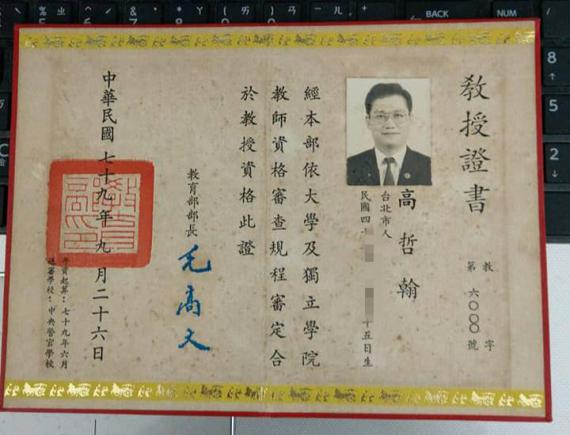 教授證書
教字
第六〇〇〇號
高哲翰
台北市人
民國四十
十五日生
經本部依大學及獨立學院
教師資格審查規程審定合
於教授資格此證
教育部部長
毛高文
中華民國七十九年九月二十六日
年資起算：七十九年六月
送審學校：中央警官學校
BACK
NUM
8
5
2